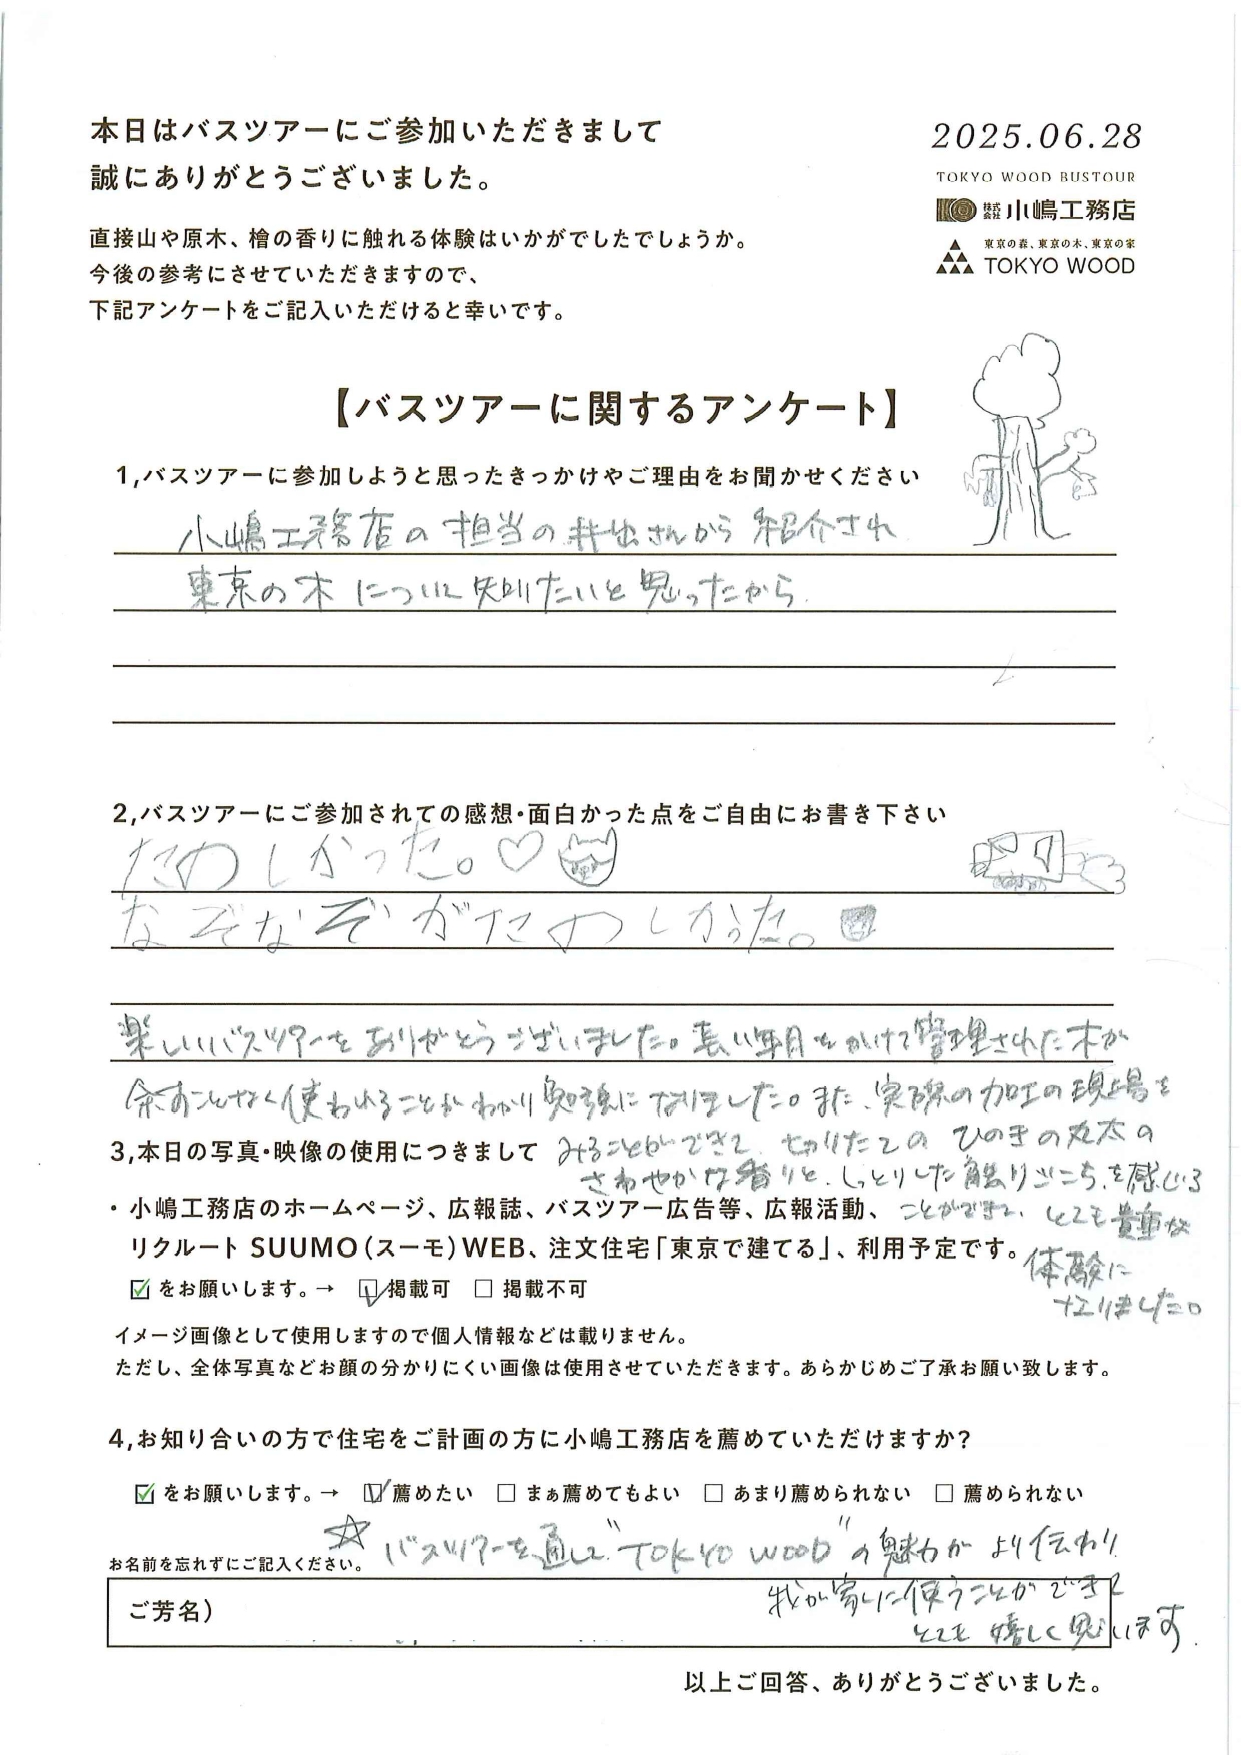 本日はバスツアーにご参加いただきまして
誠にありがとうございました。
2025.06.28
TOKYO WOOD BUSTOUR
株式会社 小嶋工務店
東京の森、東京の木、東京の家
TOKYO WOOD
直接山や原木、檜の香りに触れる体験はいかがでしたでしょうか。
今後の参考にさせていただきますので、
下記アンケートをご記入いただけると幸いです。
【バスツアーに関するアンケート】
1,バスツアーに参加しようと思ったきっかけやご理由をお聞かせください
小嶋工務店の担当の井出さんから紹介され
東京の木について知りたいと思ったから.
2,バスツアーにご参加されての感想・面白かった点をご自由にお書き下さい
たのしかった。♡
なぞなぞがたのしかった。
楽しいバスツアーをありがとうございました。長い年月をかけて管理された木が
余すことなく使われることがわかり勉強になりました。また、実際の加工の現場を
みることができて、切りたての ひのきの丸太の
さわやかな香りと、しっとりした触りごこちを感じる
ことができて、とても貴重な
体験に
なりました。
3,本日の写真・映像の使用につきまして
・小嶋工務店のホームページ、広報誌、バスツアー広告等、広報活動、
リクルート SUUMO(スーモ)WEB、注文住宅「東京で建てる」、利用予定です。
☑をお願いします。→ ☑掲載可 □掲載不可
イメージ画像として使用しますので個人情報などは載りません。
ただし、全体写真などお顔の分かりにくい画像は使用させていただきます。あらかじめご了承お願い致します。
4,お知り合いの方で住宅をご計画の方に小嶋工務店を薦めていただけますか?
☑をお願いします。→ ☑薦めたい □まぁ薦めてもよい □あまり薦められない □薦められない
☆バスツアーを通して"TOKYO WOOD"の魅力がより伝わり
我が家に使うことができて
とても嬉しく思います.
お名前を忘れずにご記入ください。
ご芳名)
以上ご回答、ありがとうございました。